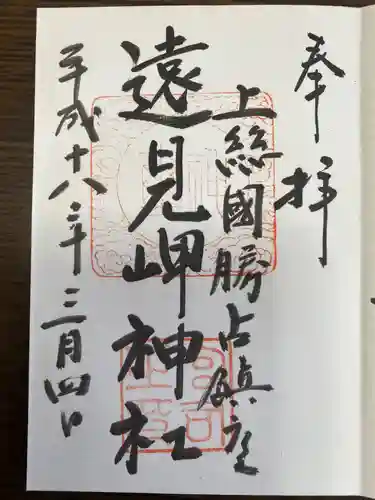 奉拝
上総國勝占鎮座
遠見岬神社
平成十八年三月四日
宮司
之印